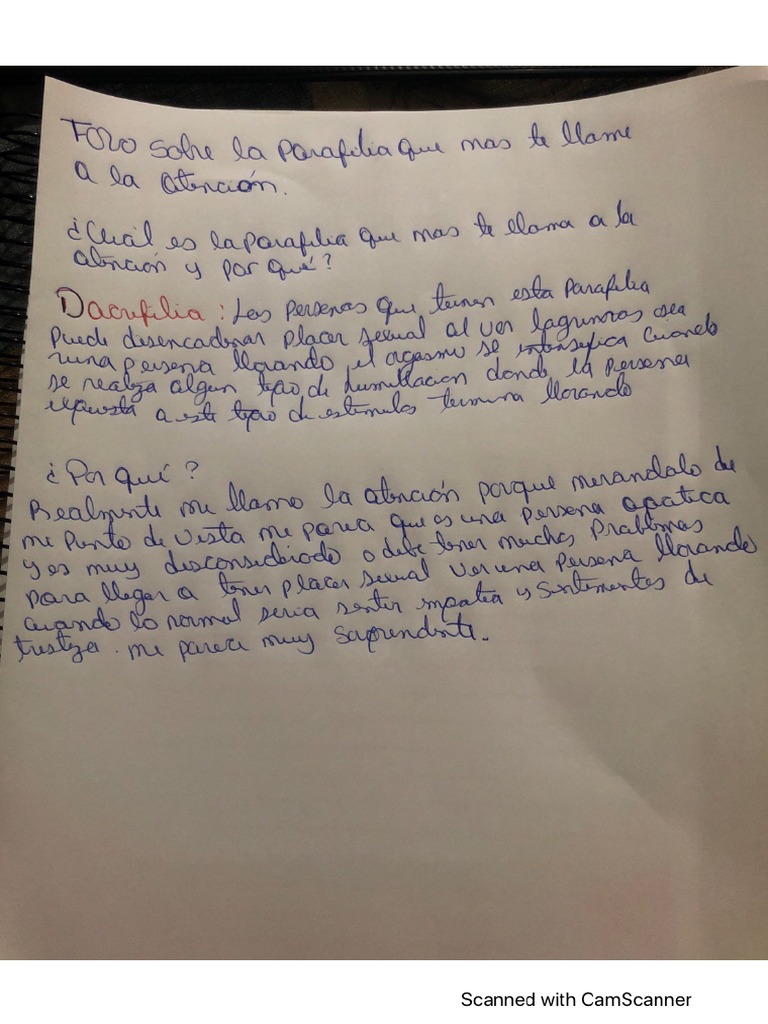 Foro sobre la parafilia que mas te llame
a la atención.
¿Cuál es la parafilia que mas te llama a la
atención y por qué?
Dacrifilia: Las personas que tienen esta parafilia
puede desencadenar placer sexual al ver lagrimas sea
una persona llorando, el orgasmo se intensifica cuando
se realiza algun tipo de humillacion donde la persona
expuesta a este tipo de estimulos termina llorando
¿Por qué?
Realmente me llamo la atención porque mirandolo de
mi punto de vista me parece que es una persona apatica
y es muy desconsiderado o debe tener muchos problemas
para llegar a tener placer sexual ver una persona llorando
cuando lo normal seria sentir impatia y sentimientos de
tristeza. me parece muy soprendente.
Scanned with CamScanner